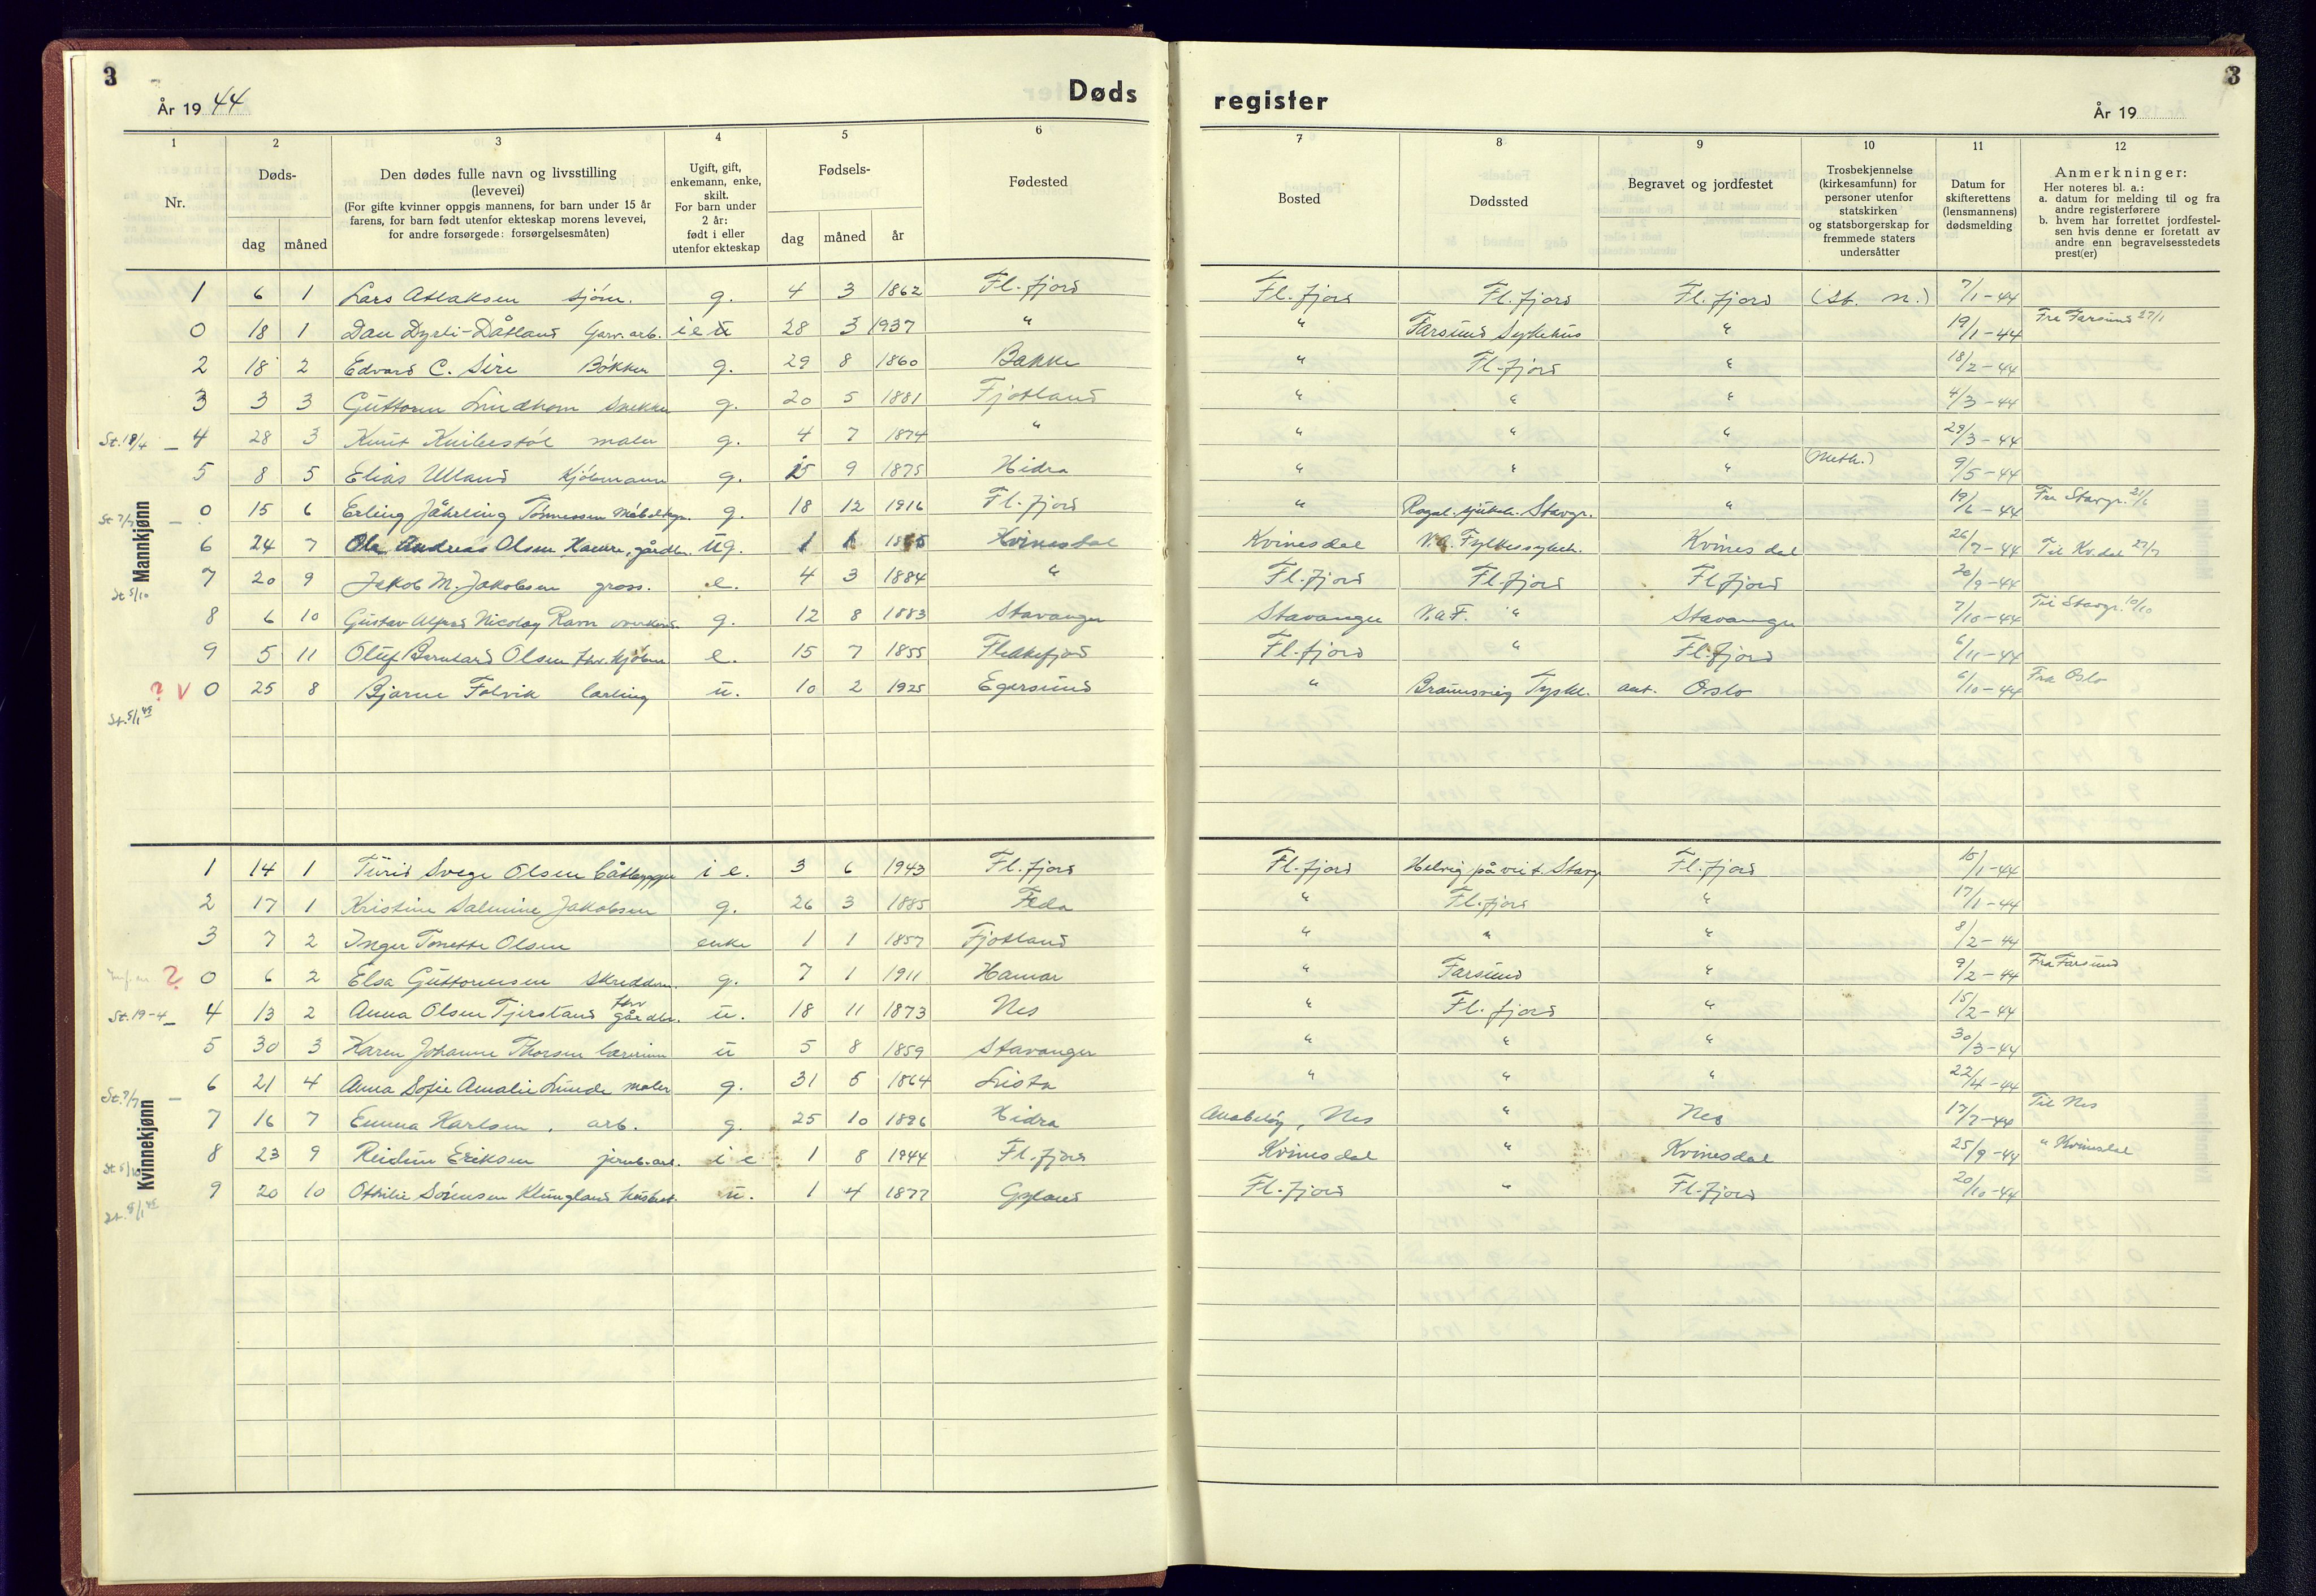 3
År 1944
Døds
register
3
År 19
1 2 3 4 5 6 7 8 9 10 11 12
Nr.
Døds-
dag måned
Den dødes fulle navn og livsstilling
(levevei)
(For gifte kvinner oppgis mannens, for barn under 15 år
farens, for barn født utenfor ekteskap morens levevei,
for andre forsørgede: forsørgelsesmåten)
Ugift, gift,
enkemann, enke,
skilt.
For barn under
2 år:
født i eller
utenfor ekteskap
Fødsels-
dag måned år
Fødested
Bosted
Dødssted
Begravet og jordfestet
Trosbekjennelse
(kirkesamfunn) for
personer utenfor
statskirken
og statsborgerskap for
fremmede staters
undersåtter
Datum for
skifterettens
(lensmannens)
dødsmelding
Anmerkninger:
Her noteres bl. a.:
a. datum for melding til og fra
andre registerførere
b. hvem har forrettet jordfestel-
sen hvis denne er foretatt av
andre enn begravelsesstedets
prest(er)
Mannkjønn
1 6 1 Lars Atlaksen sjøm. g. 4 3 1862 Fl.fjord Fl.fjord Fl.fjord Fl.fjord (St. m.) 7/1-44
0 18 1 Dan Dyrli-Dåtland Garv.arb. i e u 28 3 1937 " " Farsund Sykehus " 19/1-44 Fra Farsund 27/1
2 18 2 Edvard C. Sire Bøkker g. 29 8 1860 Bakke " Fl.fjord " 18/2-44
3 3 3 Guttorm Lindhom Snekker g. 20 5 1881 Fjotland " " " 4/3-44
St.19/4 - 4 28 3 Knut Knibestøl maler g. 4 7 1874 " " " " 29/3-44
5 8 5 Elias Ulland Kjøbmann g. 15 9 1875 Hidra " " " (Meth.) 9/5-44
St 7/7 - 0 15 6 Erling Jährling Tønnessen Møbeltapr. g. 18 12 1916 Fl.fjord " Rogal. sjukeh. Stavgr. " 19/6-44 Fra Stavgr. 21/6
6 24 7 Ola Andreas Olsen Hamre, gårdbr. ug. 1 1 Kvinesdal Kvinesdal V.a. Fylkessykeh. Kvinesdal 26/7-44 Til Kv.dal 27/7
St 5/10 7 20 9 Jakob M. Jakobsen gross. e. 4 3 1884 " Fl.fjord Fl.fjord Fl.fjord 20/9-44
8 6 10 Gustav Alfred Nicolay Ravn g. 12 8 1883 Stavanger Stavanger V.a.F. " Stavanger 7/10-44 Til Stavgr. 10/10
9 5 11 Oluf Bernhard Olsen fhv. kjøbm e. 15 7 1855 Flekkefjord Fl.fjord " Fl.fjord 6/11-44
? V 0 25 8 Bjarne Følvik lærling u. 10 2 1925 Egersund " Braunsveig Tyskl. ant. Oslo 6/10-44 Fra Oslo
St. 5/1 45
Kvinnekjønn
1 14 1 Turid Svege Olsen båtbygger i e. 3 6 1943 Fl.fjord Fl.fjord Helvig på vei t. Stavgr Fl.fjord 15/1-44
2 17 1 Kristine Salmine Jakobsen g. 26 3 1885 Feda " Fl.fjord " 17/1-44
3 7 2 Inger Tonette Olsen enke 1 1 1857 Fjotland " " " 8/2-44
? 0 6 2 Elsa Guttormsen Skreddern. g. 7 1 1911 Hamar " Farsund " 9/2-44 Fra Farsund
St. 19-4 - 4 13 2 Anna Olsen Tjørsland fhv gårdbr. u. 18 11 1873 Nes " Fl.fjord " 15/2-44
5 30 3 Karen Johanne Thorsen lærerinne u 5 8 1859 Stavanger " " " 30/3-44
St. 7/7 - 6 21 4 Anna Sofie Amalie Lunde maler g. 31 5 1864 Lista " " " 22/4-44
7 16 7 Emma Karlsen, arb. g. 25 10 1896 Hidra Anabeløy, Nes " Nes 17/7-44 Til Nes
St 5/10 8 23 9 Reidun Eriksen jernb.arb. i e 1 8 1944 Fl.fjord Kvinesdal " Kvinesdal 25/9-44 " Kvinesdal
9 20 10 Othilie Sørensen Klungland husbest. u. 1 4 1877 Gyland Fl.fjord " Fl.fjord 20/10-44
St. 5/1 45